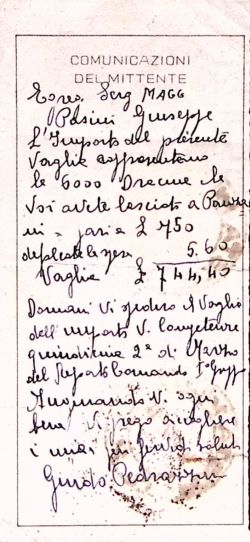 COMUNICAZIONI
DEL MITTENTE
Serg MAGG
Pasini Giuseppe
L'Importo del presente
Vaglia rappresentano
le 6000 Dracme che
Voi avete lasciato a
ni = pari a £ 750
defalcate le spese 5.60
Vaglia £ 744,40
Domani Vi spediro il Vaglia
dell'importo V. competenze
quindicina 2ª di Marzo
del Reparto Comando Iº Gruppo
Vi ogni
bene Vi prego accogliere
i miei più saluti
Guido